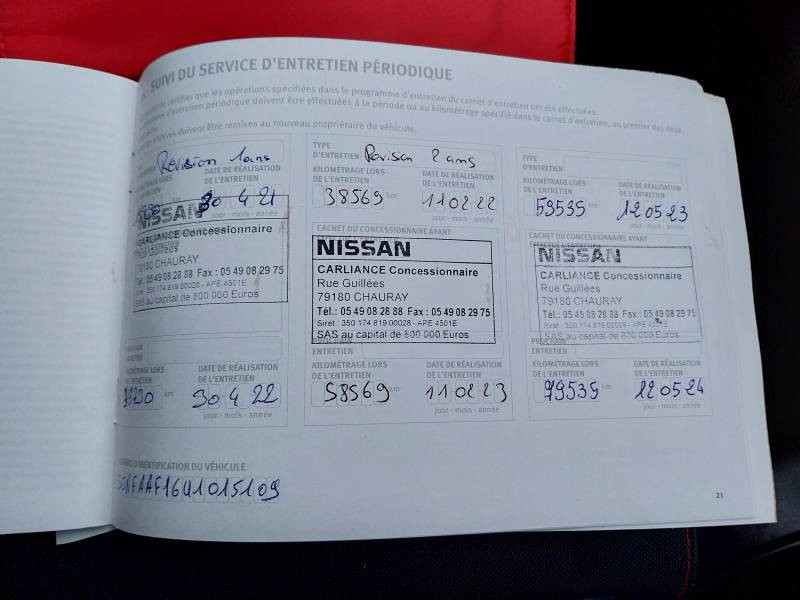 SUIVI DU SERVICE D'ENTRETIEN PÉRIODIQUE
de certifier que les opérations spécifiées dans le programme d'entretien du carnet d'entretien ont été effectuées.
d'entretien périodique doivent être effectuées à la période ou au kilométrage spécifié dans le carnet d'entretien, au premier des deux
archives doivent être remises au nouveau propriétaire du véhicule.
Révision 1ans
KILOMÉTRAGE LORS
DE L'ENTRETIEN
DATE DE RÉALISATION
DE L'ENTRETIEN
30 4 21
jour - mois - année
NISSAN
CARLIANCE Concessionnaire
Rue Guillées
79180 CHAURAY
Tél.: 05 49 08 28 88 Fax : 05 49 08 29 75
Siret : 350 174 819 00028 - APE 4501E
SAS au capital de 800 000 Euros
PROCHAIN
ENTRETIEN
KILOMÉTRAGE LORS
DE L'ENTRETIEN
km
DATE DE RÉALISATION
DE L'ENTRETIEN
30 4 22
jour - mois - année
TYPE
D'ENTRETIEN
Revision 2 ans
KILOMÉTRAGE LORS
DE L'ENTRETIEN
38569 km
DATE DE RÉALISATION
DE L'ENTRETIEN
11 02 22
jour - mois - année
CACHET DU CONCESSIONNAIRE AYANT
NISSAN
CARLIANCE Concessionnaire
Rue Guillées
79180 CHAURAY
Tél.: 05 49 08 28 88 Fax : 05 49 08 29 75
Siret : 350 174 819 00028 - APE 4501E
SAS au capital de 800 000 Euros
PROCHAIN
ENTRETIEN
KILOMÉTRAGE LORS
DE L'ENTRETIEN
58569 km
DATE DE RÉALISATION
DE L'ENTRETIEN
11 02 23
jour - mois - année
TYPE
D'ENTRETIEN
KILOMÉTRAGE LORS
DE L'ENTRETIEN
59535 km
DATE DE RÉALISATION
DE L'ENTRETIEN
12 05 23
jour - mois - année
CACHET DU CONCESSIONNAIRE AYANT
EFFECTUÉ L'ENTRETIEN
NISSAN
CARLIANCE Concessionnaire
Rue Guillées
79180 CHAURAY
Tél.: 05 49 08 28 88 Fax : 05 49 08 29 75
Siret : 350 174 819 00028 - APE 4501E
SAS au capital de 800 000 Euros
PROCHAIN
ENTRETIEN
KILOMÉTRAGE LORS
DE L'ENTRETIEN
79535 km
DATE DE RÉALISATION
DE L'ENTRETIEN
12 05 24
jour - mois - année
D'IDENTIFICATION DU VÉHICULE
21